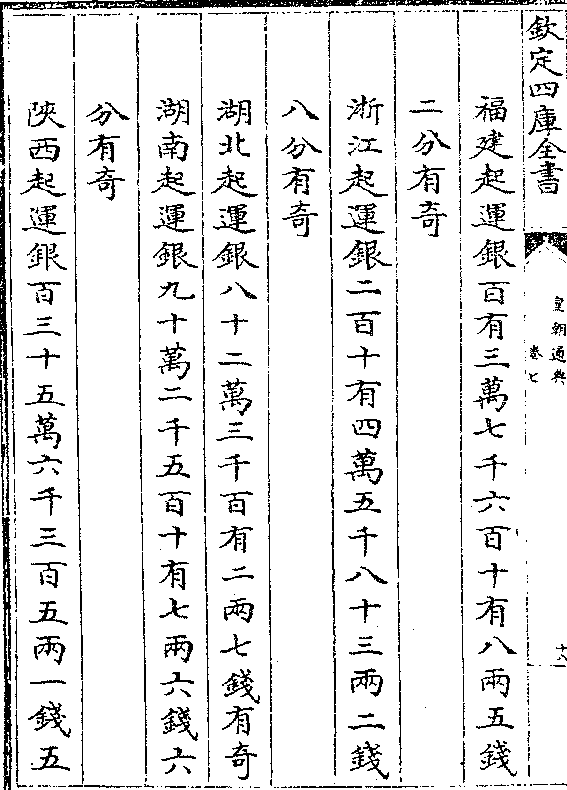 欽定四庫全書
皇朝通典
卷七
福建起運銀百有三萬七千六百十有八兩五錢
二分有奇
浙江起運銀二百十有四萬五千八十三兩二錢
八分有奇
湖北起運銀八十二萬三千百有二兩七錢有奇
湖南起運銀九十萬二千五百十有七兩六錢六
分有奇
陜西起運銀百三十五萬六千三百五兩一錢五